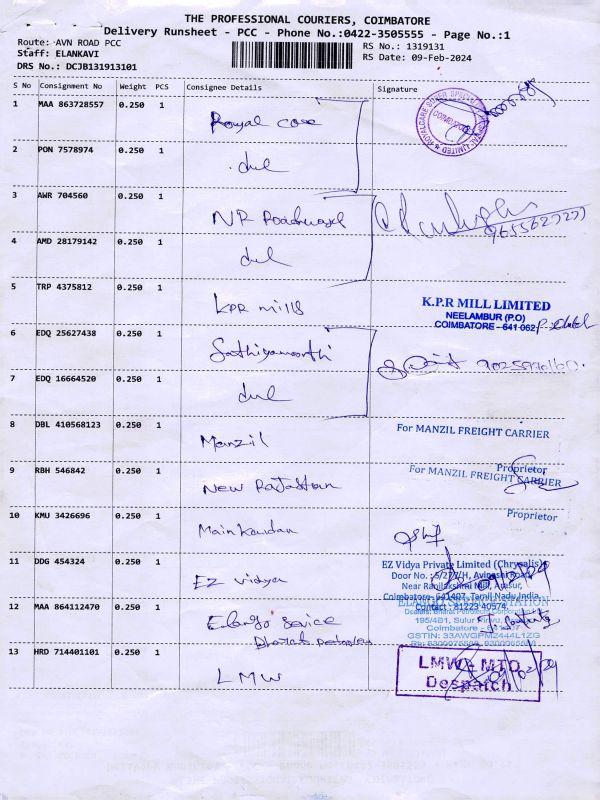 THE PROFESSIONAL COURIERS, COIMBATORE
Delivery Runsheet - PCC - Phone No.:0422-3505555 - Page No.:1
Route: AVN ROAD PCC
Staff: ELANKAVI
DRS No.: DCJB131913101
RS No.: 1319131
RS Date: 09-Feb-2024
S No Consignment No Weight PCS Consignee Details Signature
1 MAA 863728557 0.250 1 Royal care
2 PON 7578974 0.250 1
3 AWR 704560 0.250 1 NR Roadways
4 AMD 28179142 0.250 1
5 TRP 4375812 0.250 1 KPR mills
K.P.R MILL LIMITED
NEELAMBUR (P.O)
COIMBATORE - 641 062
6 EDQ 25627438 0.250 1 Sathiyamoorthi
7 EDQ 16664520 0.250 1
8 DBL 410568123 0.250 1 Manzil
For MANZIL FREIGHT CARRIER
Proprietor
9 RBH 546842 0.250 1 New Rajasthan
For MANZIL FREIGHT CARRIER
Proprietor
10 KMU 3426696 0.250 1
11 DDG 454324 0.250 1 EZ vidya
EZ Vidya Private Limited (Chrysalis)
Near Ranilakshmi Mill, Arasur,
Coimbatore-641407, Tamil Nadu, India.
Contact : 81223 40574
12 MAA 864112470 0.250 1
Coimbatore
13 HRD 714401101 0.250 1 LMW
LMW - MTD
Despatch